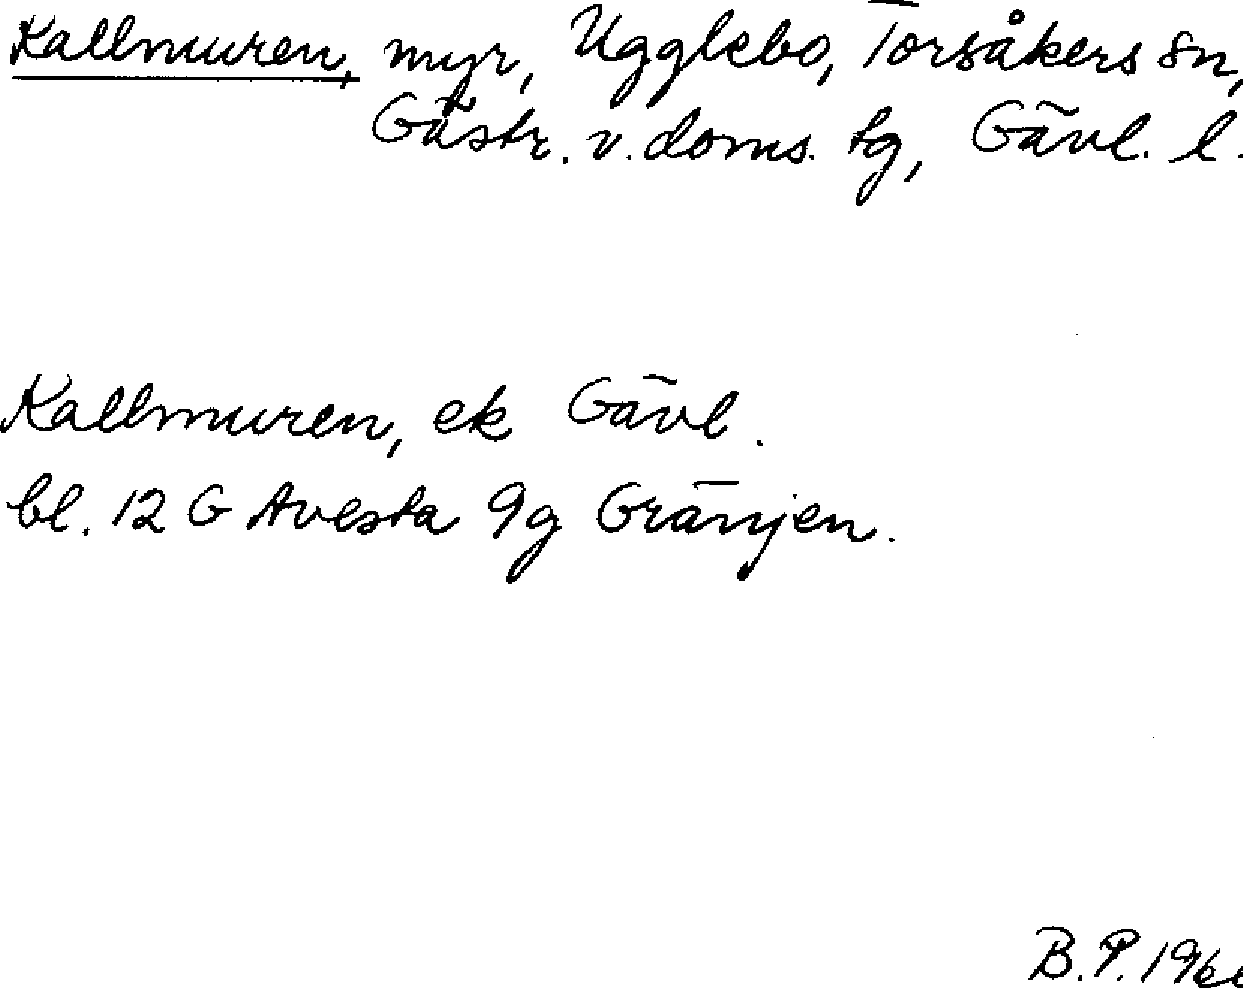 Kallmuren, myr, Ugglebo, Torsåkers sn,
Gästr. v. doms. tg, Gävl. l.
Kallmuren, ek Gävl.
bl. 12 G Avesta 9g Gränjen.
B.P.